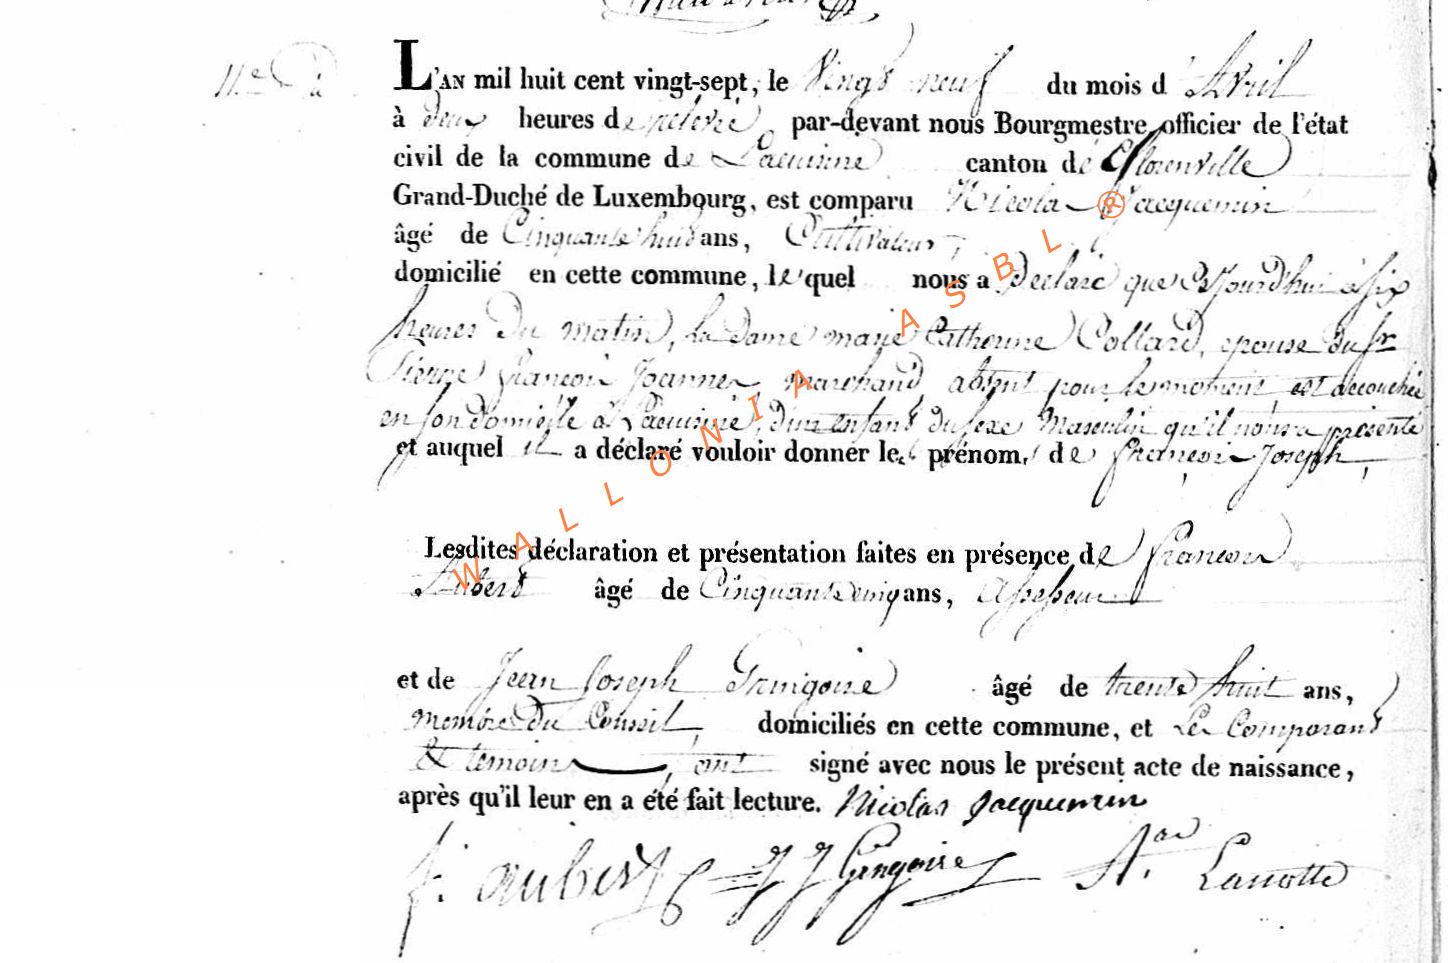 11.e
L'AN mil huit cent vingt-sept, le Vingt neuf du mois d'Avril
à deux heures de relevée, par-devant nous Bourgmestre officier de l'état
civil de la commune de Lacuisine canton de Florenville
Grand-Duché de Luxembourg, est comparu Nicolas Jacquemin
âgé de Cinquante huit ans, Cultivateur,
domicilié en cette commune, lequel nous a Declaré que cejourd'hui à six
heures du matin, la dame marie Catherine Collard, epouse du sr
Pierre françois Joannes, marchand, absent pour le moment, est accouchée
en son domicile à Lacuisine, d'un enfant du sexe Masculin qu'il nous a présenté
et auquel il a déclaré vouloir donner les prénoms de françois Joseph,
Lesdites déclaration et présentation faites en présence de françois
Aubert âgé de Cinquante cinq ans, Assesseur
et de Jean Joseph Gringoire âgé de trente huit ans,
membre du Conseil, domiciliés en cette commune, et les Comparant
& temoins, ont signé avec nous le présent acte de naissance,
après qu'il leur en a été fait lecture. Nicolas Jacquemin
f. aubert J J Gringoire Lanotte
WALLONIA ASBL ®